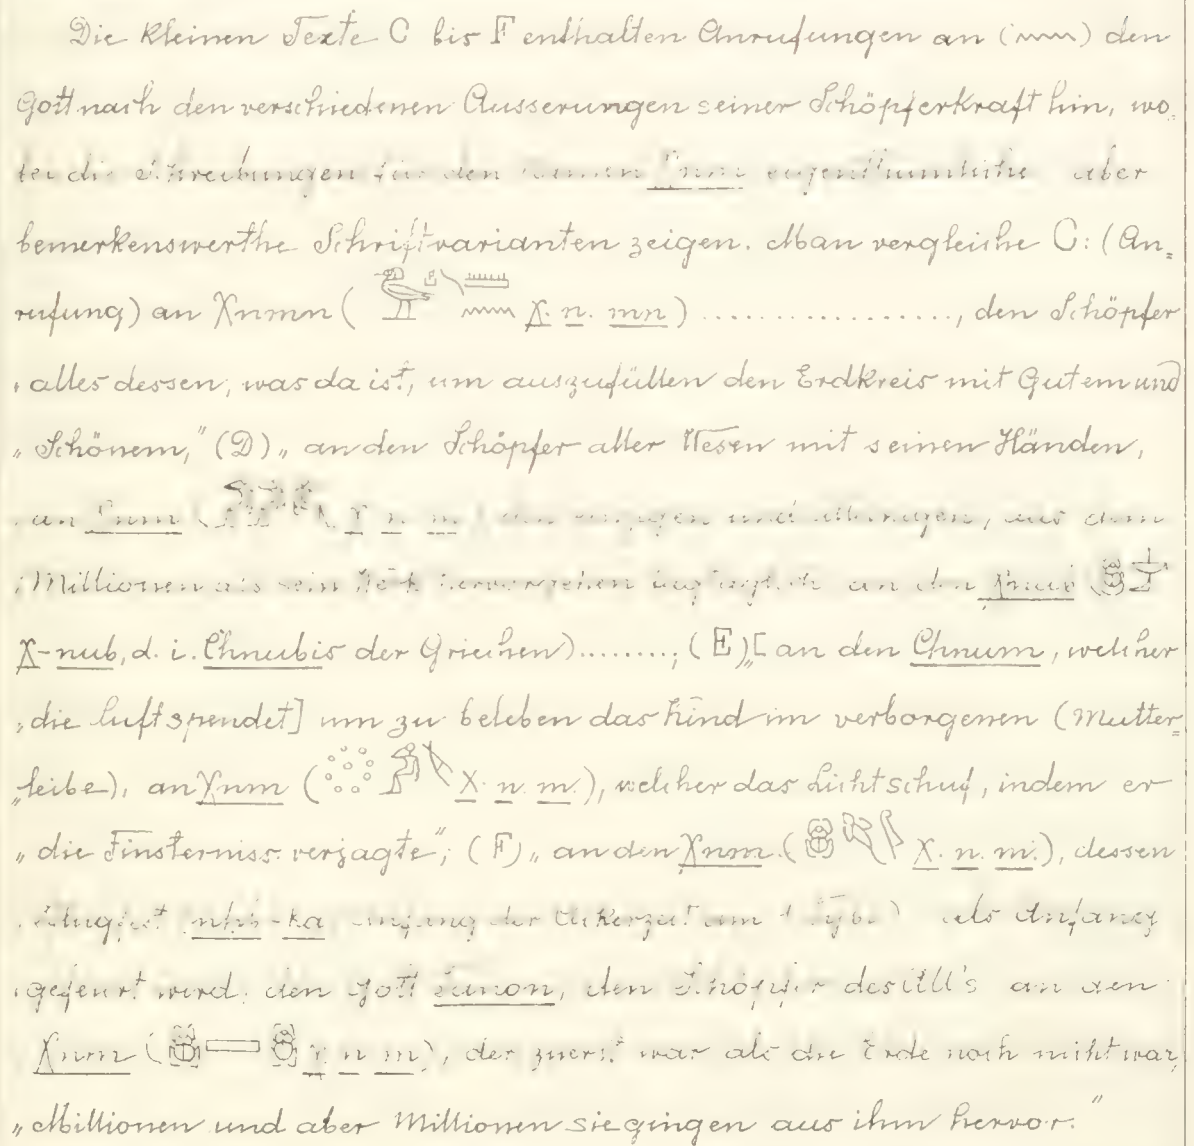 Die kleinen Texte C bis F enthalten Anrufungen an (𓈖) den
Gott nach den verschiedenen Äusserungen seiner Schöpferkraft hin, wo-
bei die Schreibungen für den Namen Xnm eigenthümliche aber
bemerkenswerthe Schriftvarianten zeigen. Man vergleiche C: (An=
rufung) an Xnmn ( X. n. mn) ................., den Schöpfer
„alles dessen, was da ist, um auszufüllen den Erdkreis mit Gutem und
„Schönem," (D) „an den Schöpfer aller Wesen mit seinen Händen,
„an Xnm ( X n m) den einzigen und alleinigen, aus dem
„Millionen als sein hervorgehen an den Xnub (
X-nub, d. i. Chnubis der Griechen)........; (E) „[an den Chnum, welcher
„die Luft spendet] um zu beleben das Kind im verborgenen (Mutter=
„leibe), an Xnm ( X. n. m.), welcher das Licht schuf, indem er
„die Finsterniss verjagte"; (F) „an den Xnm. ( X. n. m.), dessen
nhb-ka Anfang der Ackerzeit am 1 Tybi) als Anfang
„gefeiert wird, den Gott, den Schöpfer des All's an den
Xnm ( X n m), der zuerst war als die Erde noch nicht war,
„Millionen und aber Millionen sie gingen aus ihm hervor."